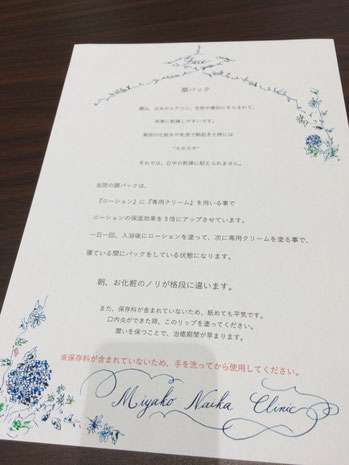 Face
顔パック
顔は、日光やエアコン、化粧や摩擦にさらされて、
非常に乾燥しやすいです。
普段の化粧水や乳液で朝起きた時には
"カサカサ"
それでは、日中の乾燥に耐えられません。
当院の顔パックは、
『ローション』に『専用クリーム』を用いる事で
ローションの保湿効果を3倍にアップさせています。
一日一回、入浴後にローションを塗って、次に専用クリームを塗る事で、
寝ている間にパックをしている状態になります。
朝、お化粧のノリが格段に違います。
また、保存料が含まれていないため、舐めても平気です。
口内炎ができた時、このリップを塗ってください。
潤いを保つことで、治癒期間が早まります。
※保存料が含まれていないため、手を洗ってから使用してください。
Miyako Naika Clinic